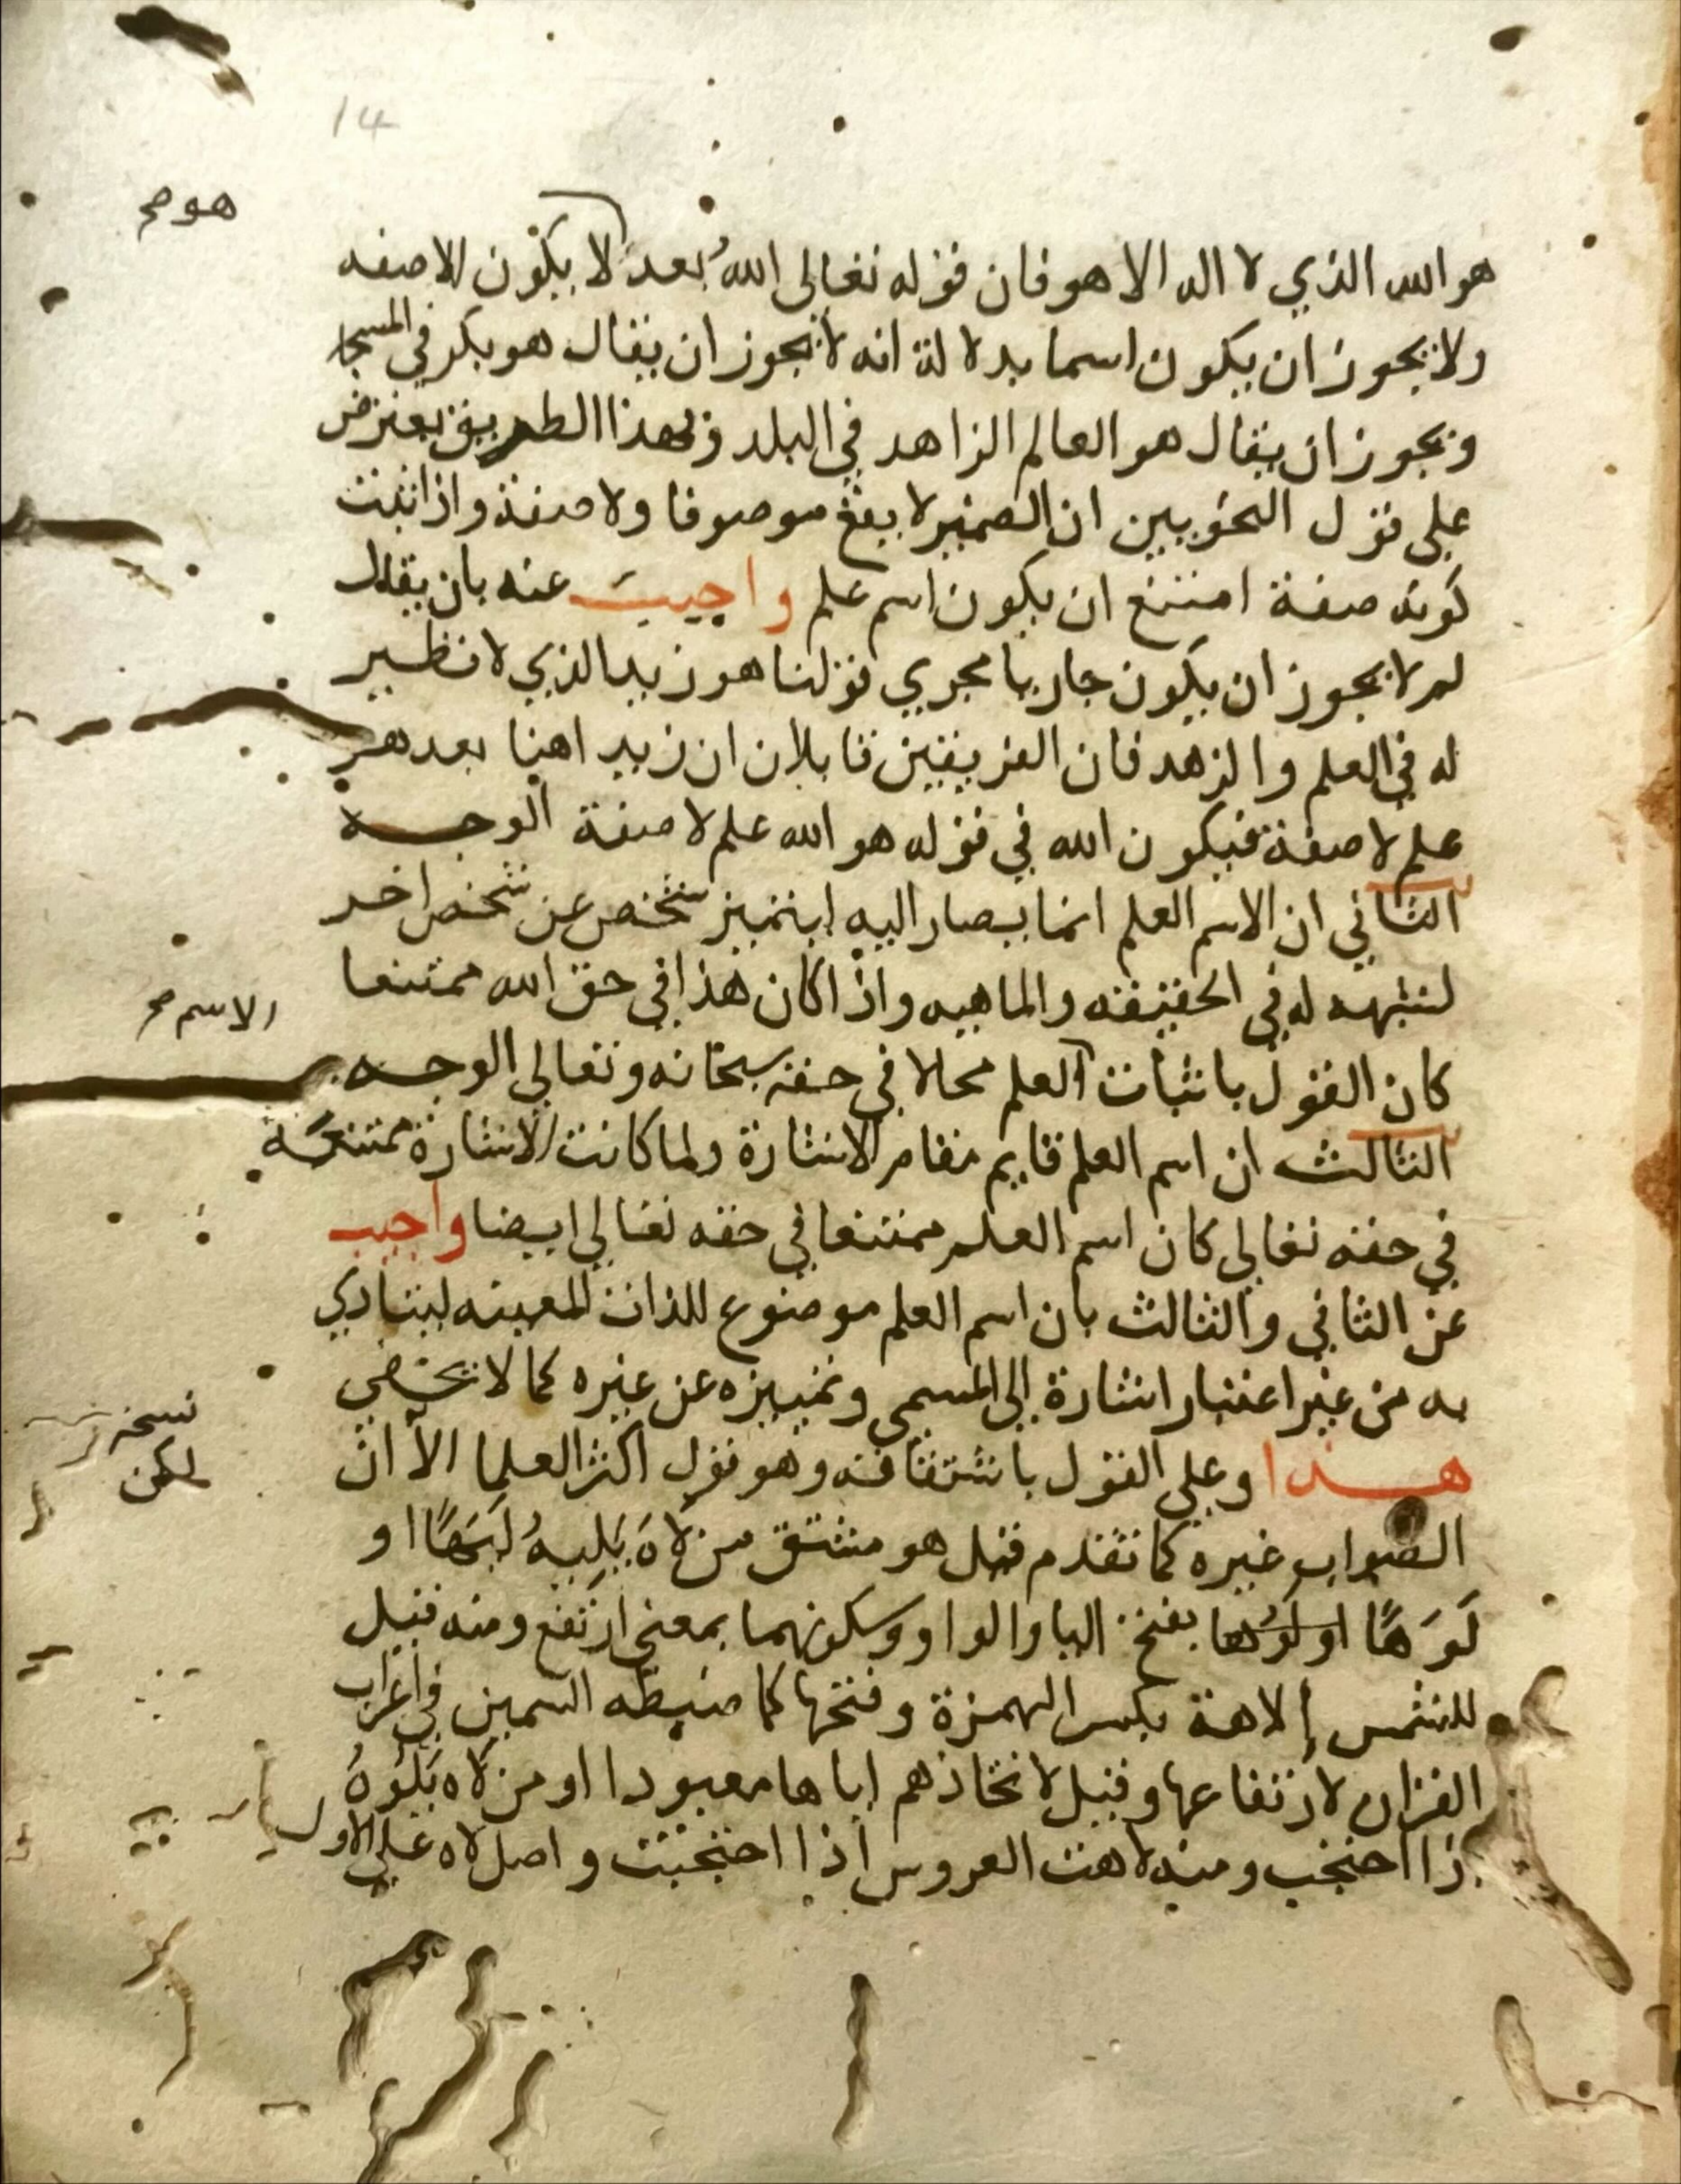 14
هو صح
هو الله الذي لا اله الا هو فان قوله تعالى الله بعد لا يكون الا صفه
ولا يجوز ان يكون اسما بدلالة انه لا يجوز ان يقال هو بكر في المسجد
ويجوز ان يقال هو العالم الزاهد في البلد وبهذا الطريق يعترض
على قول النحويين ان الضمير لا يقع موصوفا ولا صفة واذا ثبت
كونه صفة امتنع ان يكون اسم علم واجيب عنه بان يقال
لم لا يجوز ان يكون جاريا مجري قولنا هو زيد الذي لا نظير
له في العلم والزهد فان الفريقين قايلان ان زيد اهنا بعد هو
علم لا صفة فيكون الله في قوله هو الله علم لا صفة الوجه
الثاني ان الاسم العلم انما يصار اليه ليتميز شخص عن شخص اخر
لشبهه له في الحقيقه والماهيه واذا كان هذا في حق الله ممتنعا
الاسم صح
كان القول باثبات العلم محالا في حقه سبحانه وتعالى الوجه
الثالث ان اسم العلم قايم مقام الاشارة ولما كانت الاشارة ممتنعة
في حقه تعالى كان اسم العلم ممتنعا في حقه تعالى ايضا واجيب
عن الثاني والثالث بان اسم العلم موضوع للذات المعينه لينادي
به من غير اعتبار اشارة الى المسمى وتمييزه عن غيره كما لا يخفي
نسخة
لكن
هذا وعلي القول باشتقاقه وهو قول اكثر العلما الا ان
الصواب غيره كما تقدم فقيل هو مشتق من لَاهَ يَلِيهُ لَيَهًا او
لَوَهًا او لَوْها بفتح اليا والواو وسكونهما بمعني ارتفع ومنه قيل
للشمس إلاهة بكسر الهمزة وفتحها كما ضبطه السمين في اعراب
القران لارتفاعها وقيل لاتخاذهم اياها معبودا او من لَاه يَلُوهُ
اذا احتجب ومنه لاهت العروس اذا احتجبت واصل لاه على الاول